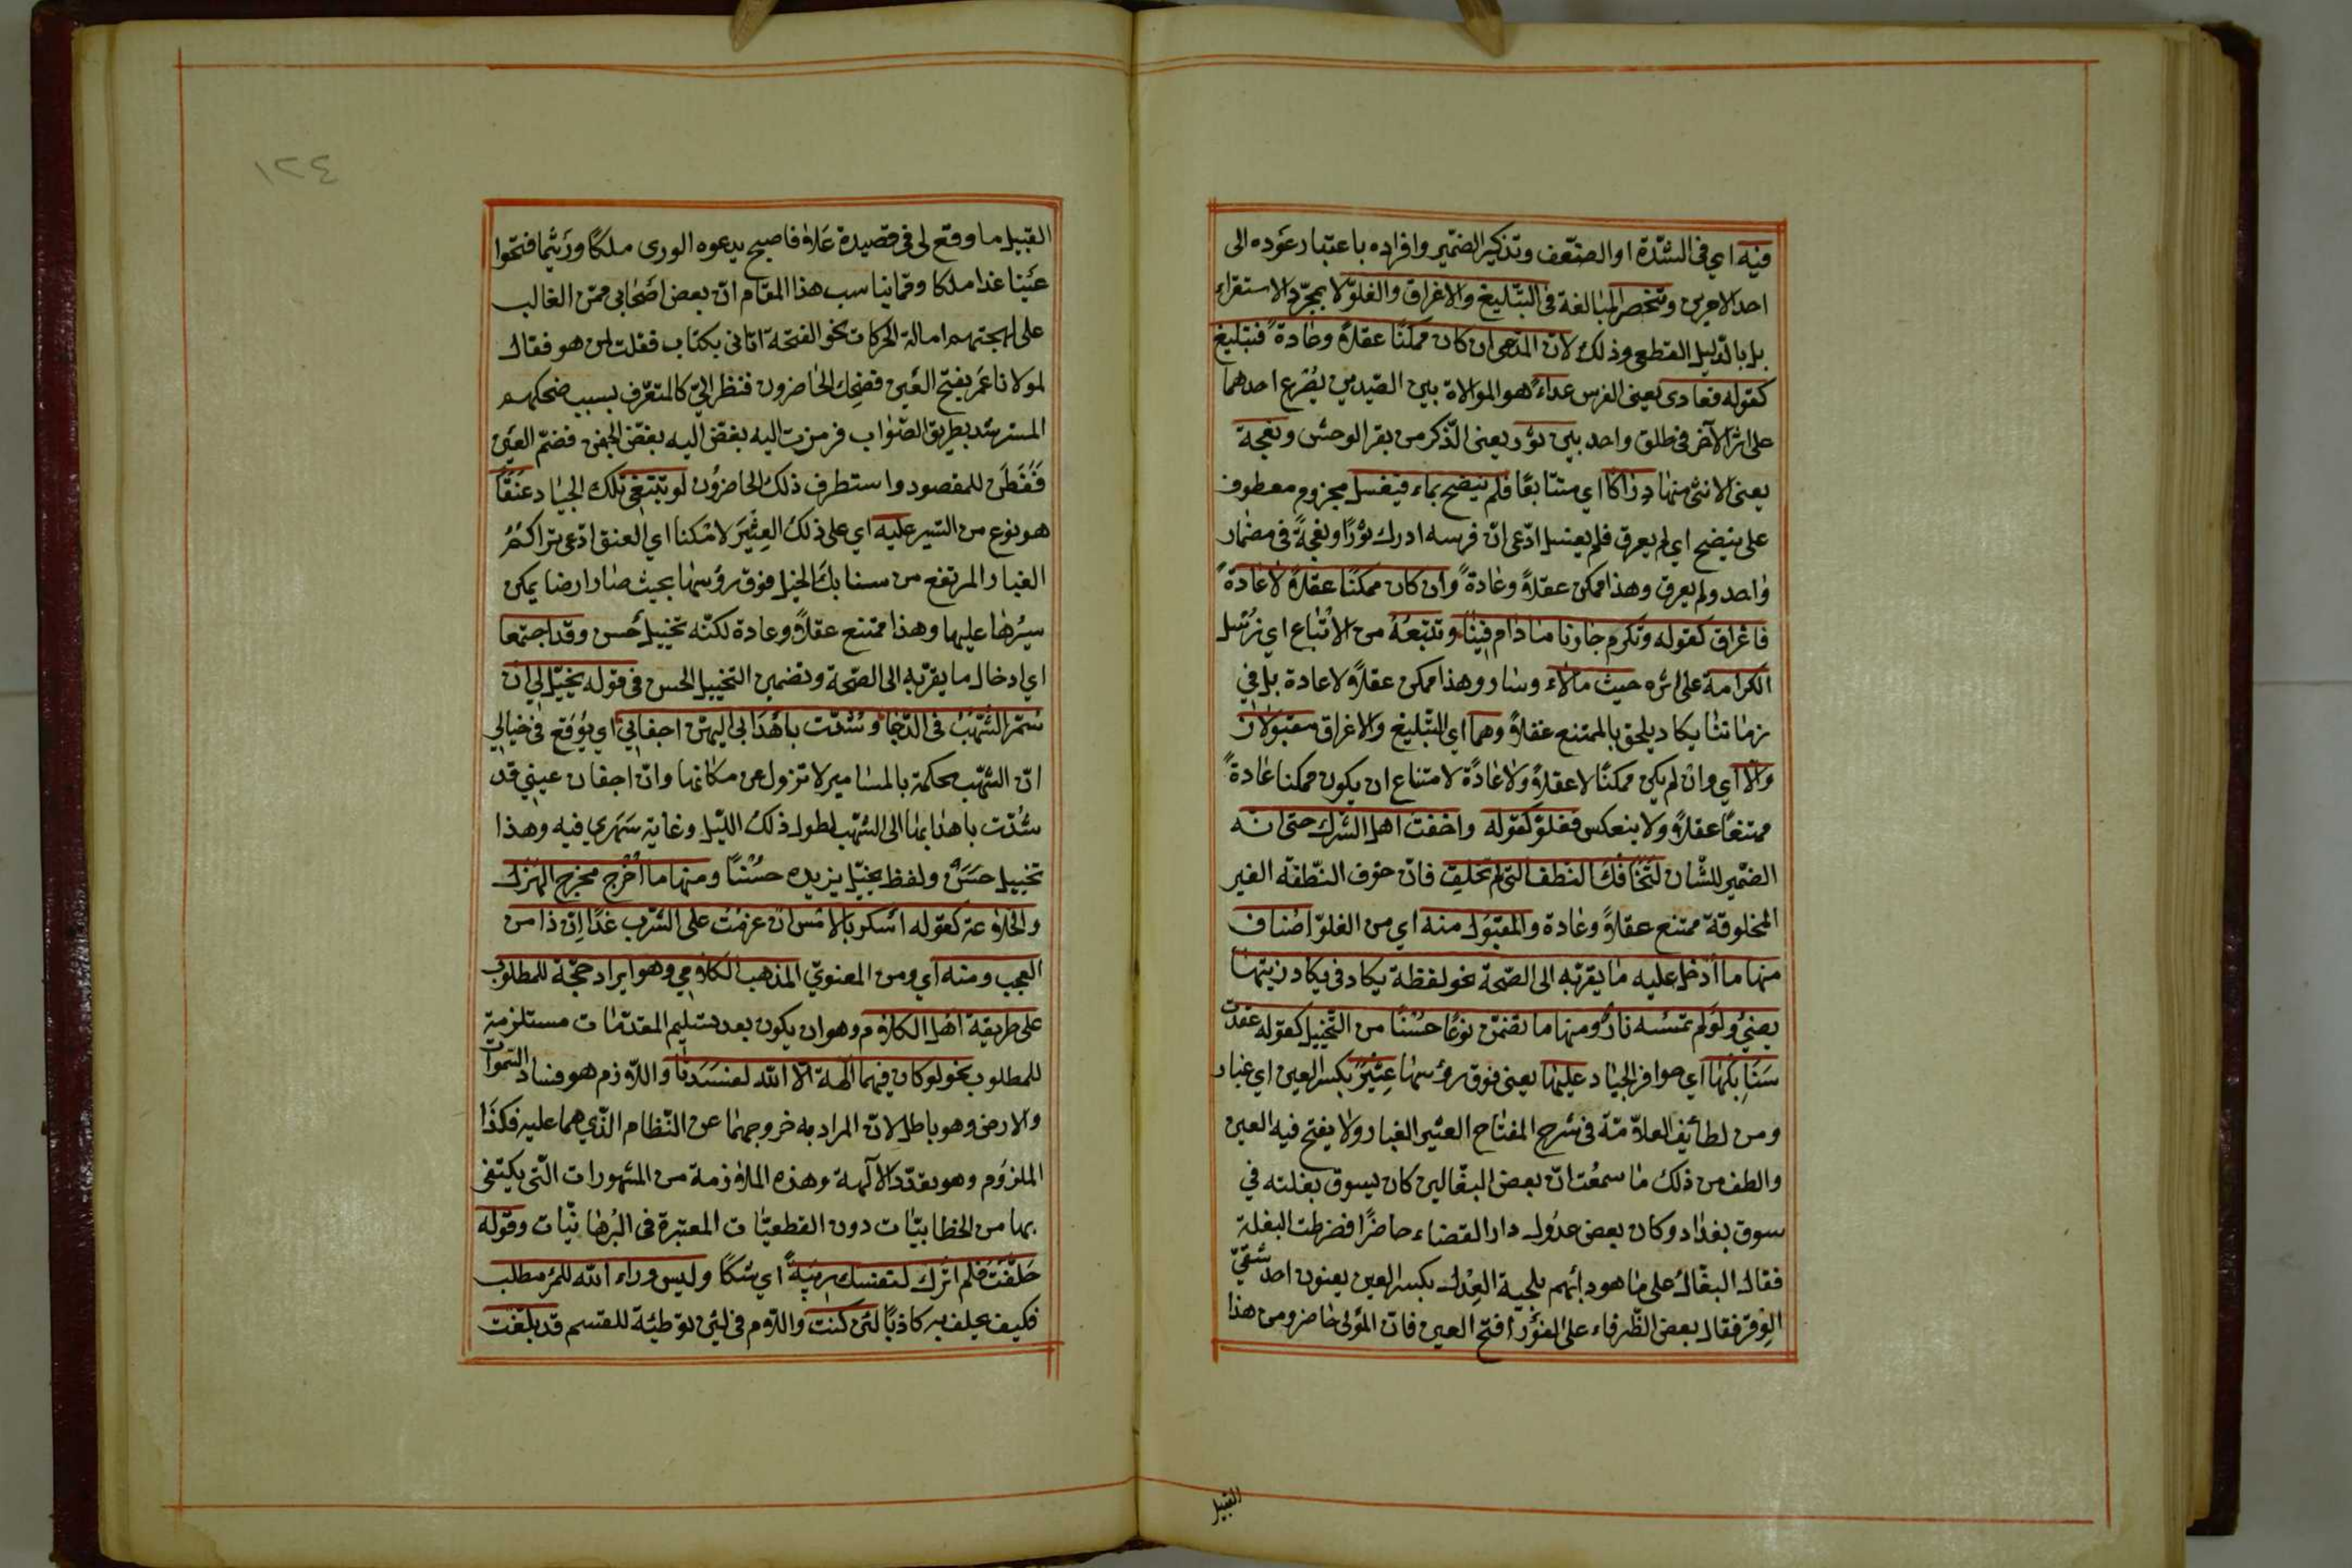 فيه اي في الشدّة او الضعف وتذكير الضمير وافراده باعتبار عوده الى
احد الامرين وتنحصر المبالغة في التبليغ والاغراق والغلوّ لا بمجرّد الاستقراء
بل بالدّليل القطعي وذلك لانّ المدّعى ان كان ممكنًا عقلاً وعادةً فتبليغ
كقوله فعادى يعني الفرس عداءً هو الموالاة بين الصّيدين يُصْرع احدهما
على اثر الآخر في طلق واحد بين ثور يعني الذّكر من بقر الوحش ونعجة
يعني الانثى منها دِرَاكًا اي متتابعًا فلم ينضح بماء فيغسل مجزوم معطوف
على ينضح اي لم يعرق فلم يغسل ادّعى انّ فرسه ادرك ثورًا ونعجةً في مضمار
واحد ولم يعرق وهذا ممكن عقلاً وعادةً وان كان ممكنًا عقلاً لا عادةً
فاغراق كقوله ونكرم جارنا مادام فينا ونتبعُهُ من الاتباع اي نرسل
الكرامة على اثره حيث مالاء وسار وهذا ممكن عقلاً ولا عادة بل في
زماننا يكاد يلحق بالممتنع عقلاً وهما اي التّبليغ والاغراق مقبولان
والّا اي وان لم يكن ممكنًا لا عقلاً ولا عادًة لامتناع ان يكون ممكنا عادةً
ممتنعًا عقلاً ولا ينعكس فغلوّ كقوله واخفت اهل الشّرك حتى انّه
الضمير للشّان لَتَخَافُكَ النطف التي لم تخلق فانّ خوف النّطفة الغير
المخلوقة ممتنع عقلاً وعادة والمقبول منه اي من الغلوّ اصناف
منها ما اُدخل عليه ما يقرّبه الى الصّحة نحو لفظة يكاد في يكاد زيتها
يضيءُ ولو لم تمسسه نارٌ ومنها ما تضمّن نوعًا حسنًا من التّخييل كقوله عقدت
سَنَابكها اي حوافر الجياد عليها يعني فوق رؤسها عِثْيَرًا بكسر العين اي غبار
ومن لطايف العلاّمة في شرح المفتاح العثير الغبار ولا يفتح فيه العين
والطف من ذلك ما سمعت انّ بعض البغّالين كان يسوق بغلته في
سوق بغداد وكان بعض عدُول دار القضاء حاضرًا فضرطت البغلة
فقال البغّالُ على ما هو دأبهم بلحية العِدْل بكسر العين يعنون احد شقّيّ
الوِقر فقال بعض الظّرفاء على الفؤر افتح العين فانّ المؤلى حاضر ومن هذا
القبيل
١٢٤
القبيل ما وقع لي في قصيدة عَلاَ فاصبح يدعوه الورى ملكًا وريثما فتحوا
عَيْنا غدا ملكا وممّا يناسب هذا المقام انّ بعض اصْحابي ممّن الغالب
على لهجتهم امالة الحركات نحو الفتحة اتاني بكتاب فقلت لمن هو فقال
لمولانا عَمَر بفتح العَين فضحك الحاضرون فنظر اليّ كالمتعرّف بسبب ضحكهم
المسترشد بطريق الصّواب فرمزت اليه بغضّ اليه بغضّ الجفن فضمّ العَين
فَفَطَن للمقصود واستطرف ذلك الحاضرُون لو تبتغي تلك الجياد عنَقًا
هو نوع من السّير عليه اي على ذلك العِثْيَر لامْكنا اي العنق ادّعى تراكُمَ
الغبار المرتفع من سنابك الخيل فوق رؤسها بحيث صار ارضا يمكن
سيرُها عليها وهذا ممتنع عقلاً وعادة لكنّه تخييل حسن وقد اجتمعا
اي ادخال ما يقرّبه الى الصّحة وتضمين التخييل الحسن في قوله يخيّل لي ان
سُمّر الشّهبُ في الدّجا وشُدّت باهْدَابي اليهنّ اجفاني اي يُوقع في خيالي
انّ الشّهب محكمة بالمسامير لا تزول عن مكانها وانّ اجفان عيني قد
شُدّت باهدابها الى الشّهب لطول ذلك اللّيل وغاية سَهَري فيه وهذا
تخييل حسَنٌ ولفظ يخيّل يزيده حسْنًا ومنها ما اُخْرج مخرج الهَزْل
والخلاعة كقوله اسكر بالامْس ان عزمْتُ على الشّرب غدًا انّ ذا من
العجب ومنه اي ومن المعنويّ المذهب الكلامي وهو ايراد حجّة للمطلوب
على طريقة اهل الكلام وهو ان يكون بعد تسليم المقدّمات مستلزمة
للمطلوب نحو لو كان فيهما آلهة الا الله لفسَدَتَا واللّازم هو فساد السّموات
والارض وهو باطل لانّ المراد به خروجهما عن النّظام الّذي هما عليه فكذا
الملزوم وهو تعدّد الآلهة وهذه الملازمة من المشهورات الّتي يكتفى
بها من الخطابيّات دون القطعيّات المعتبرة في البُرهانيّات وقوله
حَلَفْتُ فلم اترك لنفسك رِيبَةً اي شكًا وليس وراء الله للمرْء مطلب
فكيف يحلف به كاذبًا لئن كنت واللّام في لئن توطئة للقسم قد بُلّغت